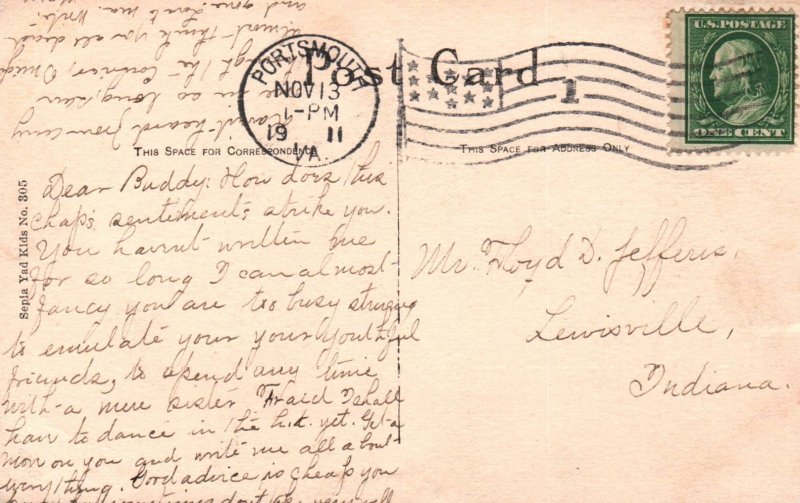 Post Card
PORTSMOUTH
NOV 13
1-PM
1911
VA.
1
U.S. POSTAGE
ONE CENT
THIS SPACE FOR CORRESPONDENCE
THIS SPACE FOR ADDRESS ONLY
Sepia Yad Kids No. 305
Dear Buddy: How does this
chap's sentiments strike you.
You havn't written me
for so long I can almost
fancy you are too busy
to emulate your your youthful
friends, to spend any time
with a mere sister. 'Fraid I shall
have to dance in the h.t. yet. Get a
move on you and write me all about
everything. Good advice is cheap you
Mr. Floyd D. Jefferis.
Lewisville,
Indiana.
Havn't heard from any
so long
almost think you all dead
and gone. Love to ma.